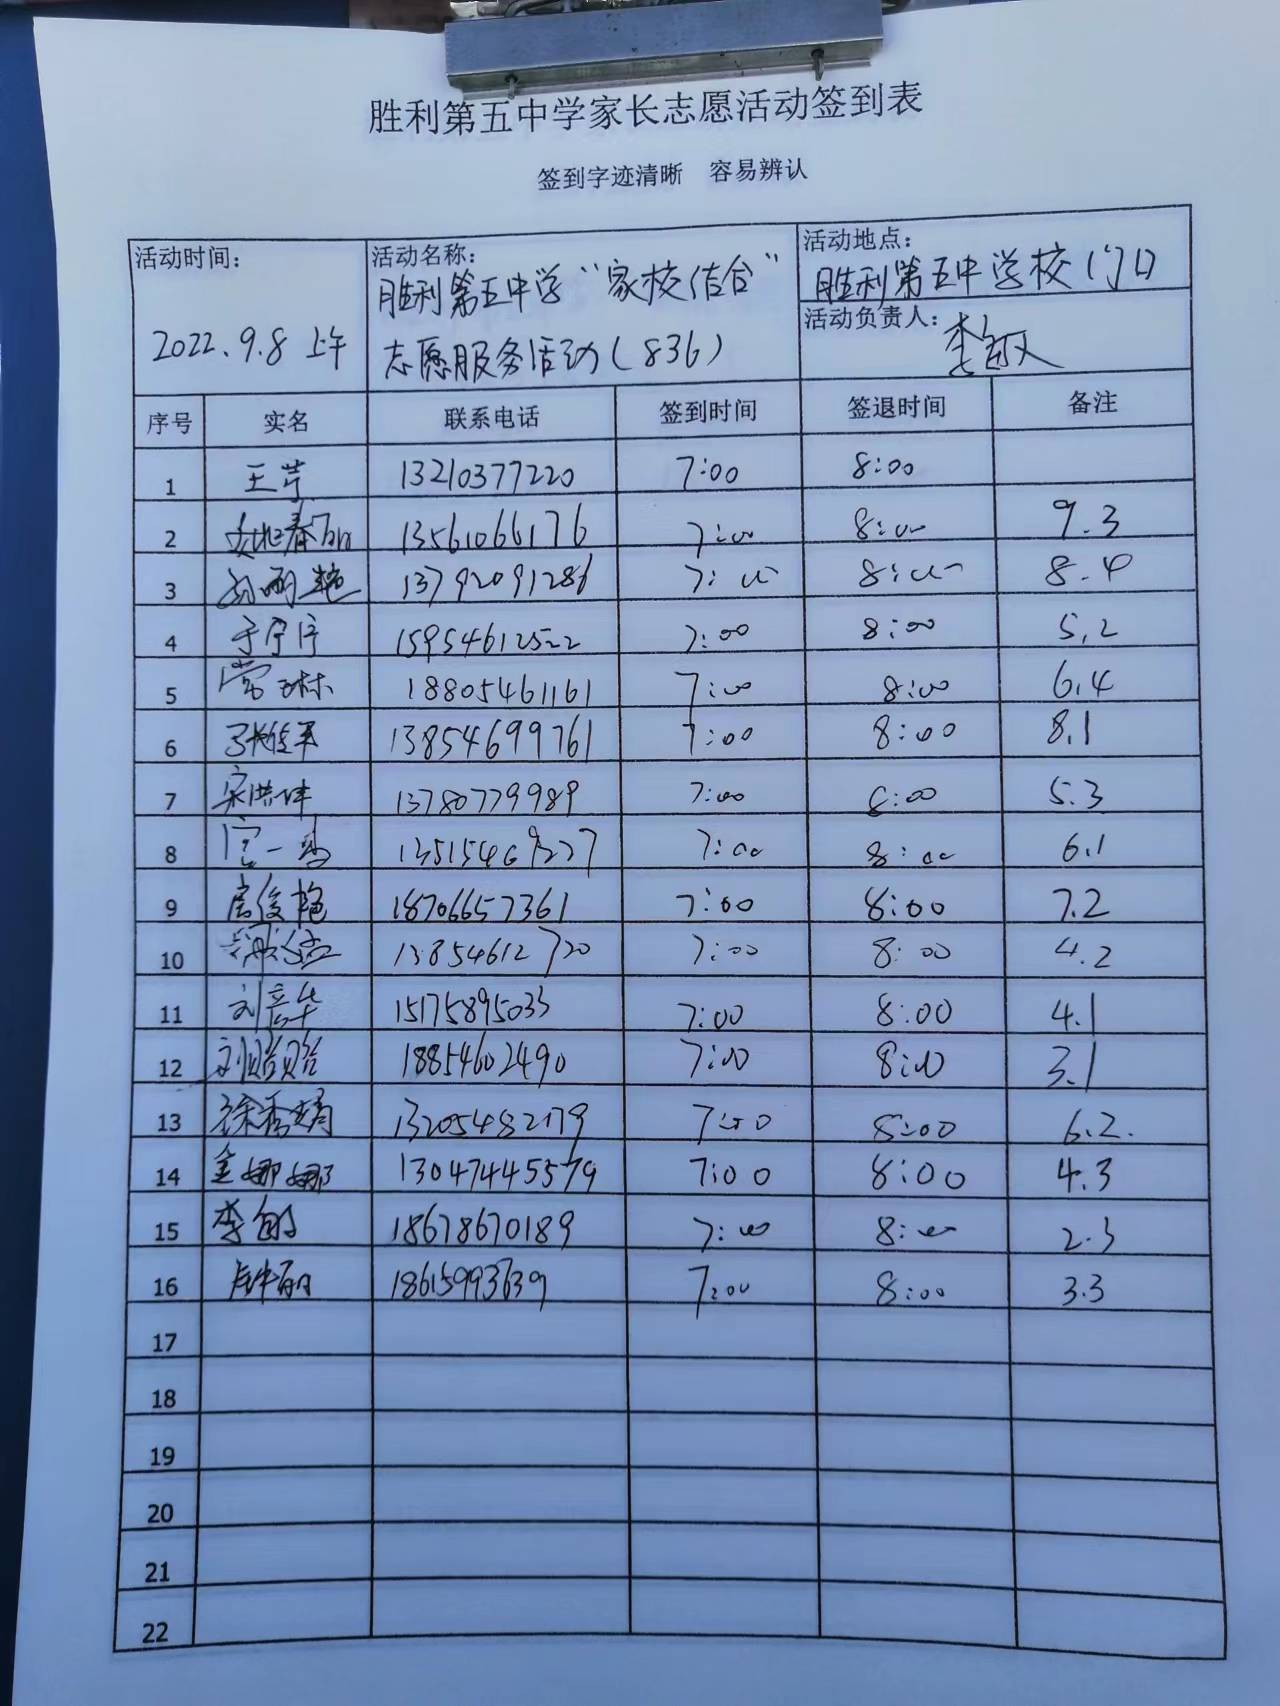 胜利第五中学家长志愿活动签到表
签到字迹清晰 容易辨认
活动时间:
2022.9.8 上午
活动名称:
胜利第五中学“家校结合”
志愿服务活动(836)
活动地点:
胜利第五中学校门口
活动负责人:
李敏
序号 实名 联系电话 签到时间 签退时间 备注
1 王芹 13210377220 7:00 8:00
2 13561066176 7:00 8:00 9.3
3 13792091286 7:00 8:00 8.4
4 15954612522 7:00 8:00 5.2
5 常琳 18805461161 7:00 8:00 6.4
6 13854699761 7:00 8:00 8.1
7 宋洪坤 13780779989 7:00 8:00 5.3
8 7:00 8:00 6.1
9 18706657361 7:00 8:00 7.2
10 13854612720 7:00 8:00 4.2
11 15175895033 7:00 8:00 4.1
12 18854602490 7:00 8:00 3.1
13 徐秀娟 7:00 8:00 6.2.
14 金娜娜 13047445579 7:00 8:00 4.3
15 18678670189 7:00 8:00 2.3
16 18615993639 7:00 8:00 3.3
17
18
19
20
21
22